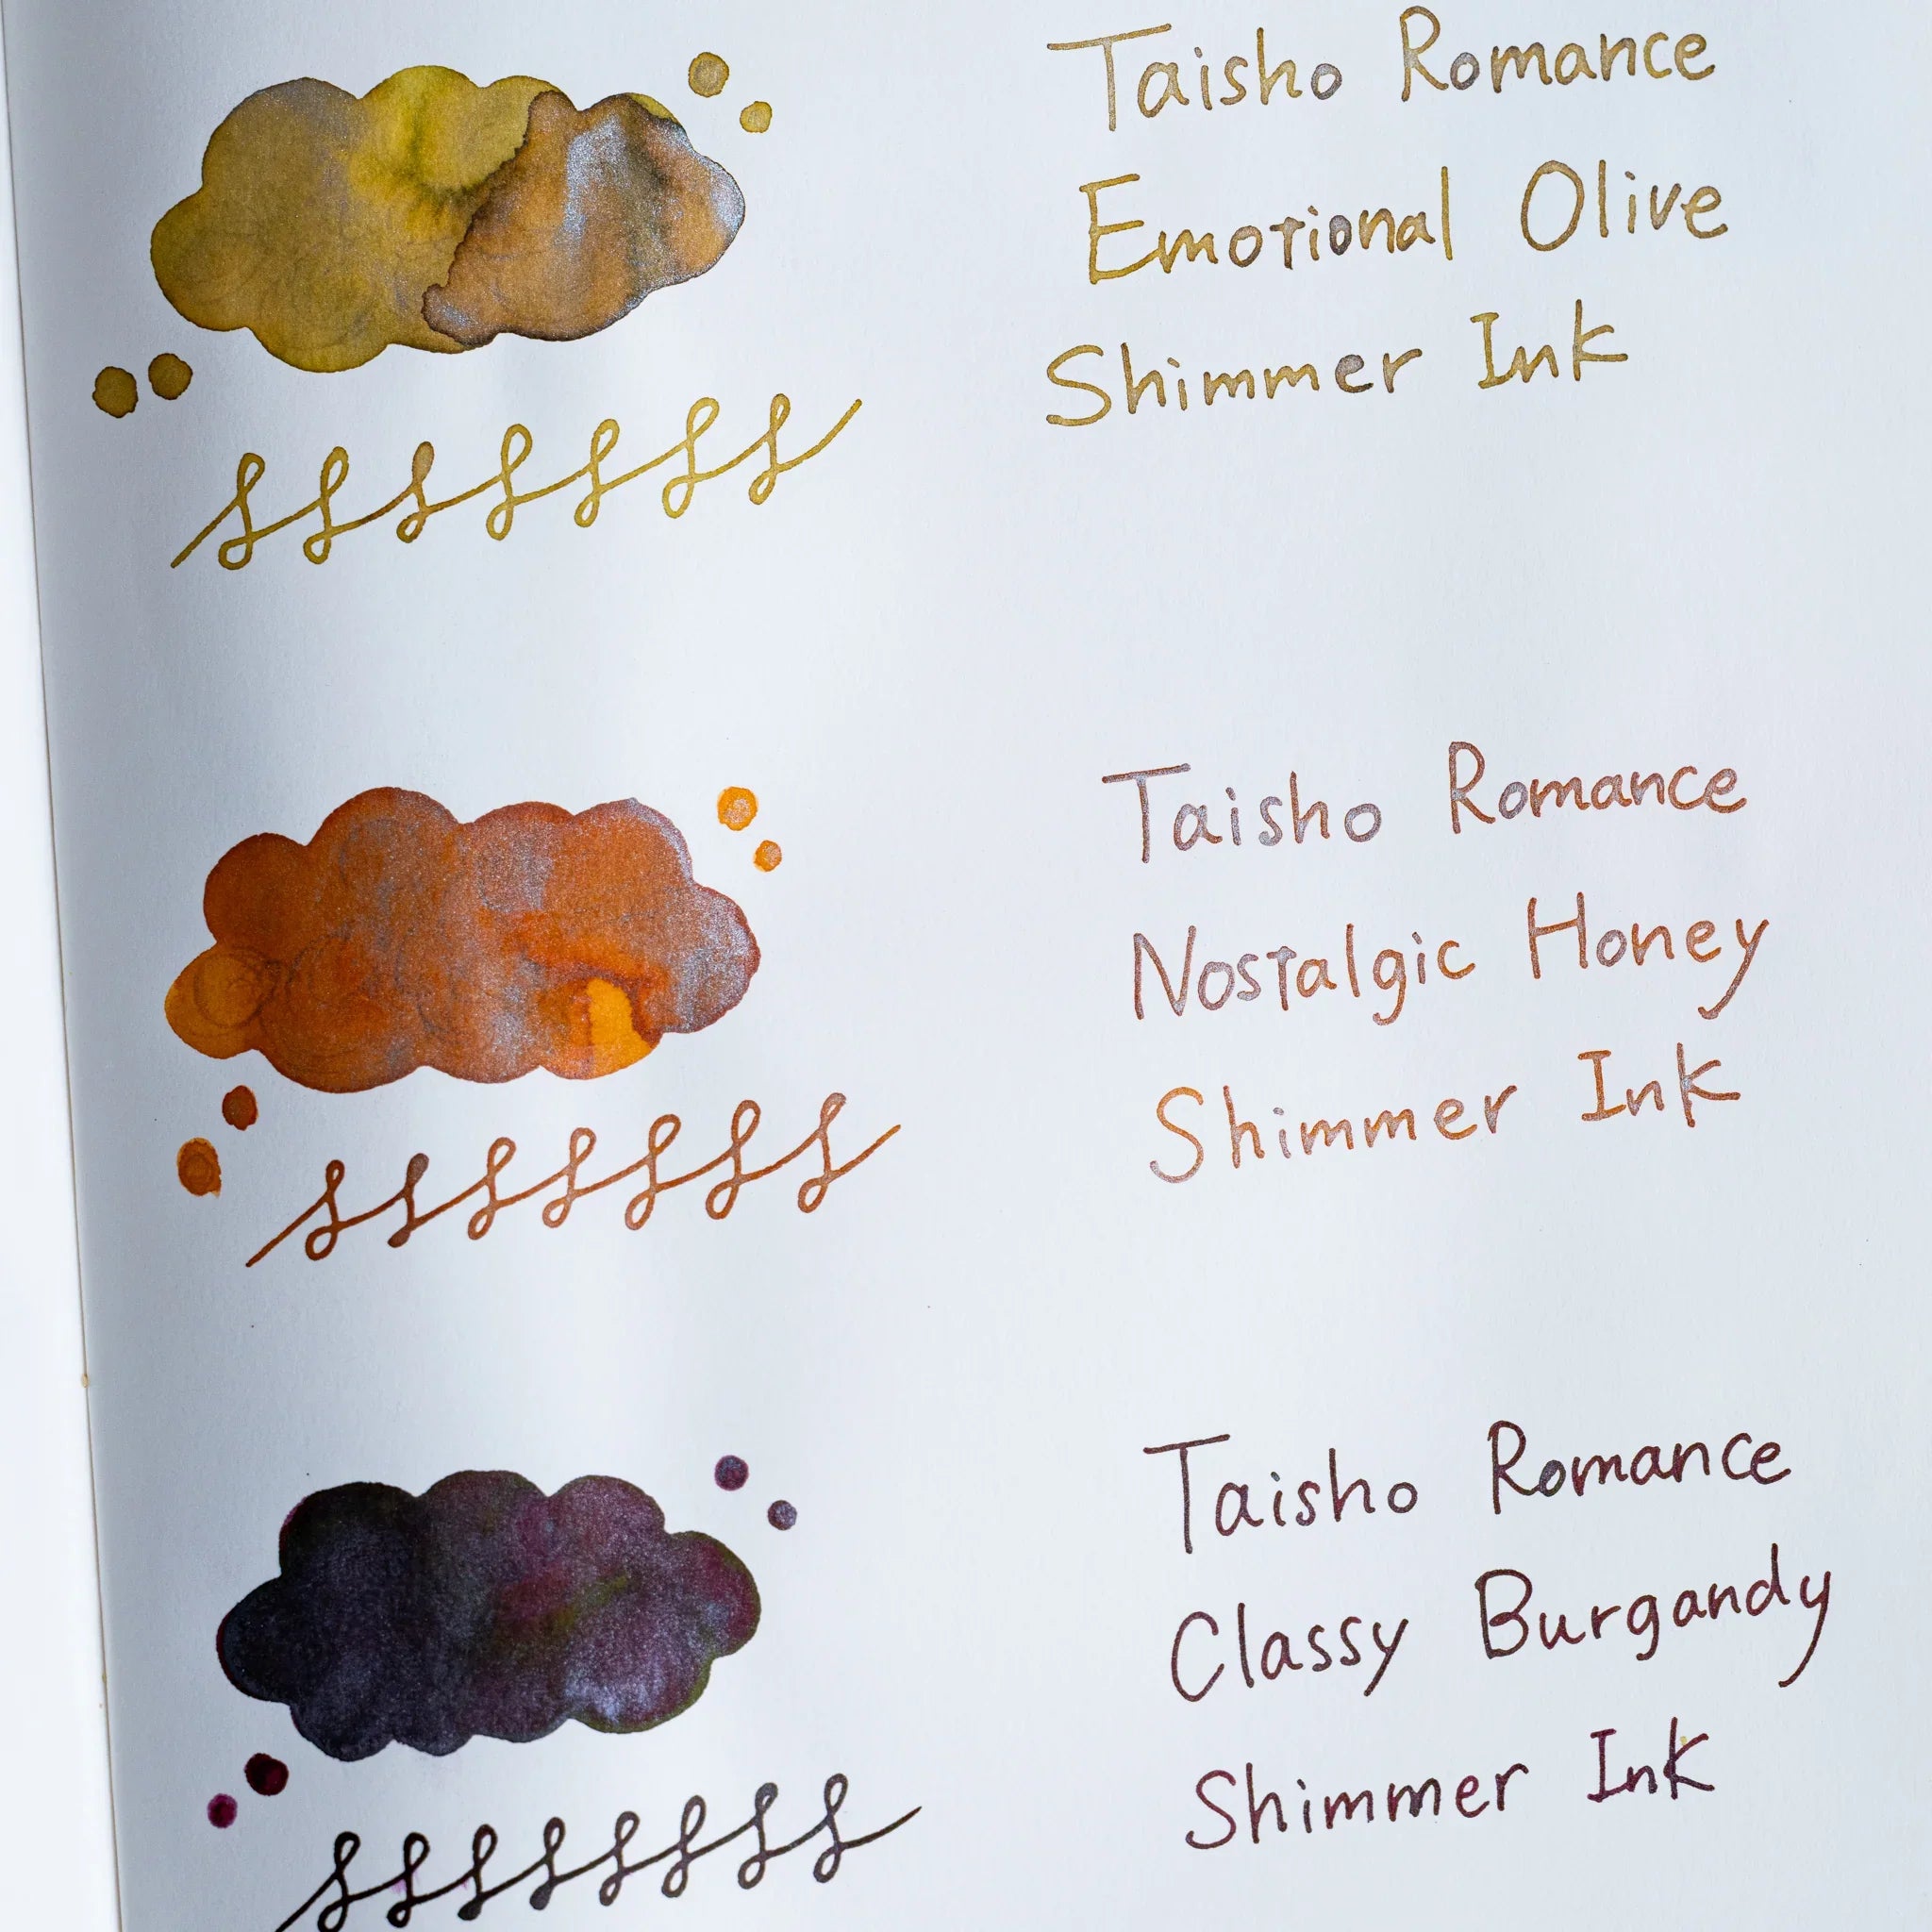 Taisho Romance
Emotional Olive
Shimmer Ink
Taisho Romance
Nostalgic Honey
Shimmer Ink
Taisho Romance
Classy Burgandy
Shimmer Ink